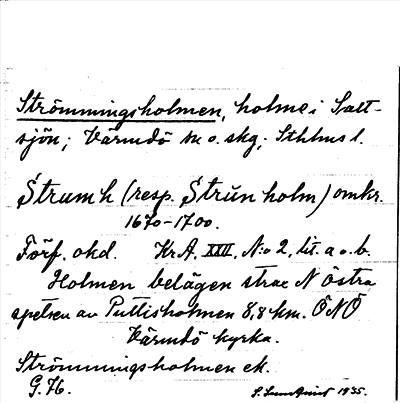 Strömmingsholmen, holme i Salt-
sjön; Värmdö sn o. skg; Sthlms l.
Strumh (resp. Strŭnholm) omkr.
1670-1700.
Förf. okd. Kr A. XXII, N:o 2, lit. a o. b.
Holmen belägen strax N östra
spetsen av Puttisholmen 8,8 km. ÖNÖ
Värmdö kyrka.
Strömmingsholmen ek.
G. 76. 1935.